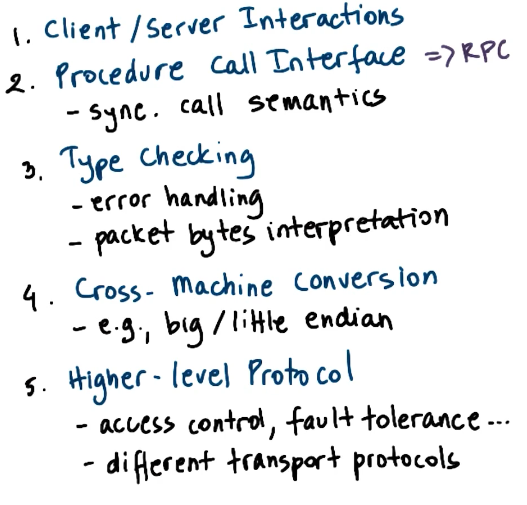 1. Client/Server Interactions
2. Procedure Call Interface => RPC
- sync. call semantics
3. Type Checking
- error handling
- packet bytes interpretation
4. Cross-Machine Conversion
- e.g., big/little endian
5. Higher-level Protocol
- access control, fault tolerance...
- different transport protocols